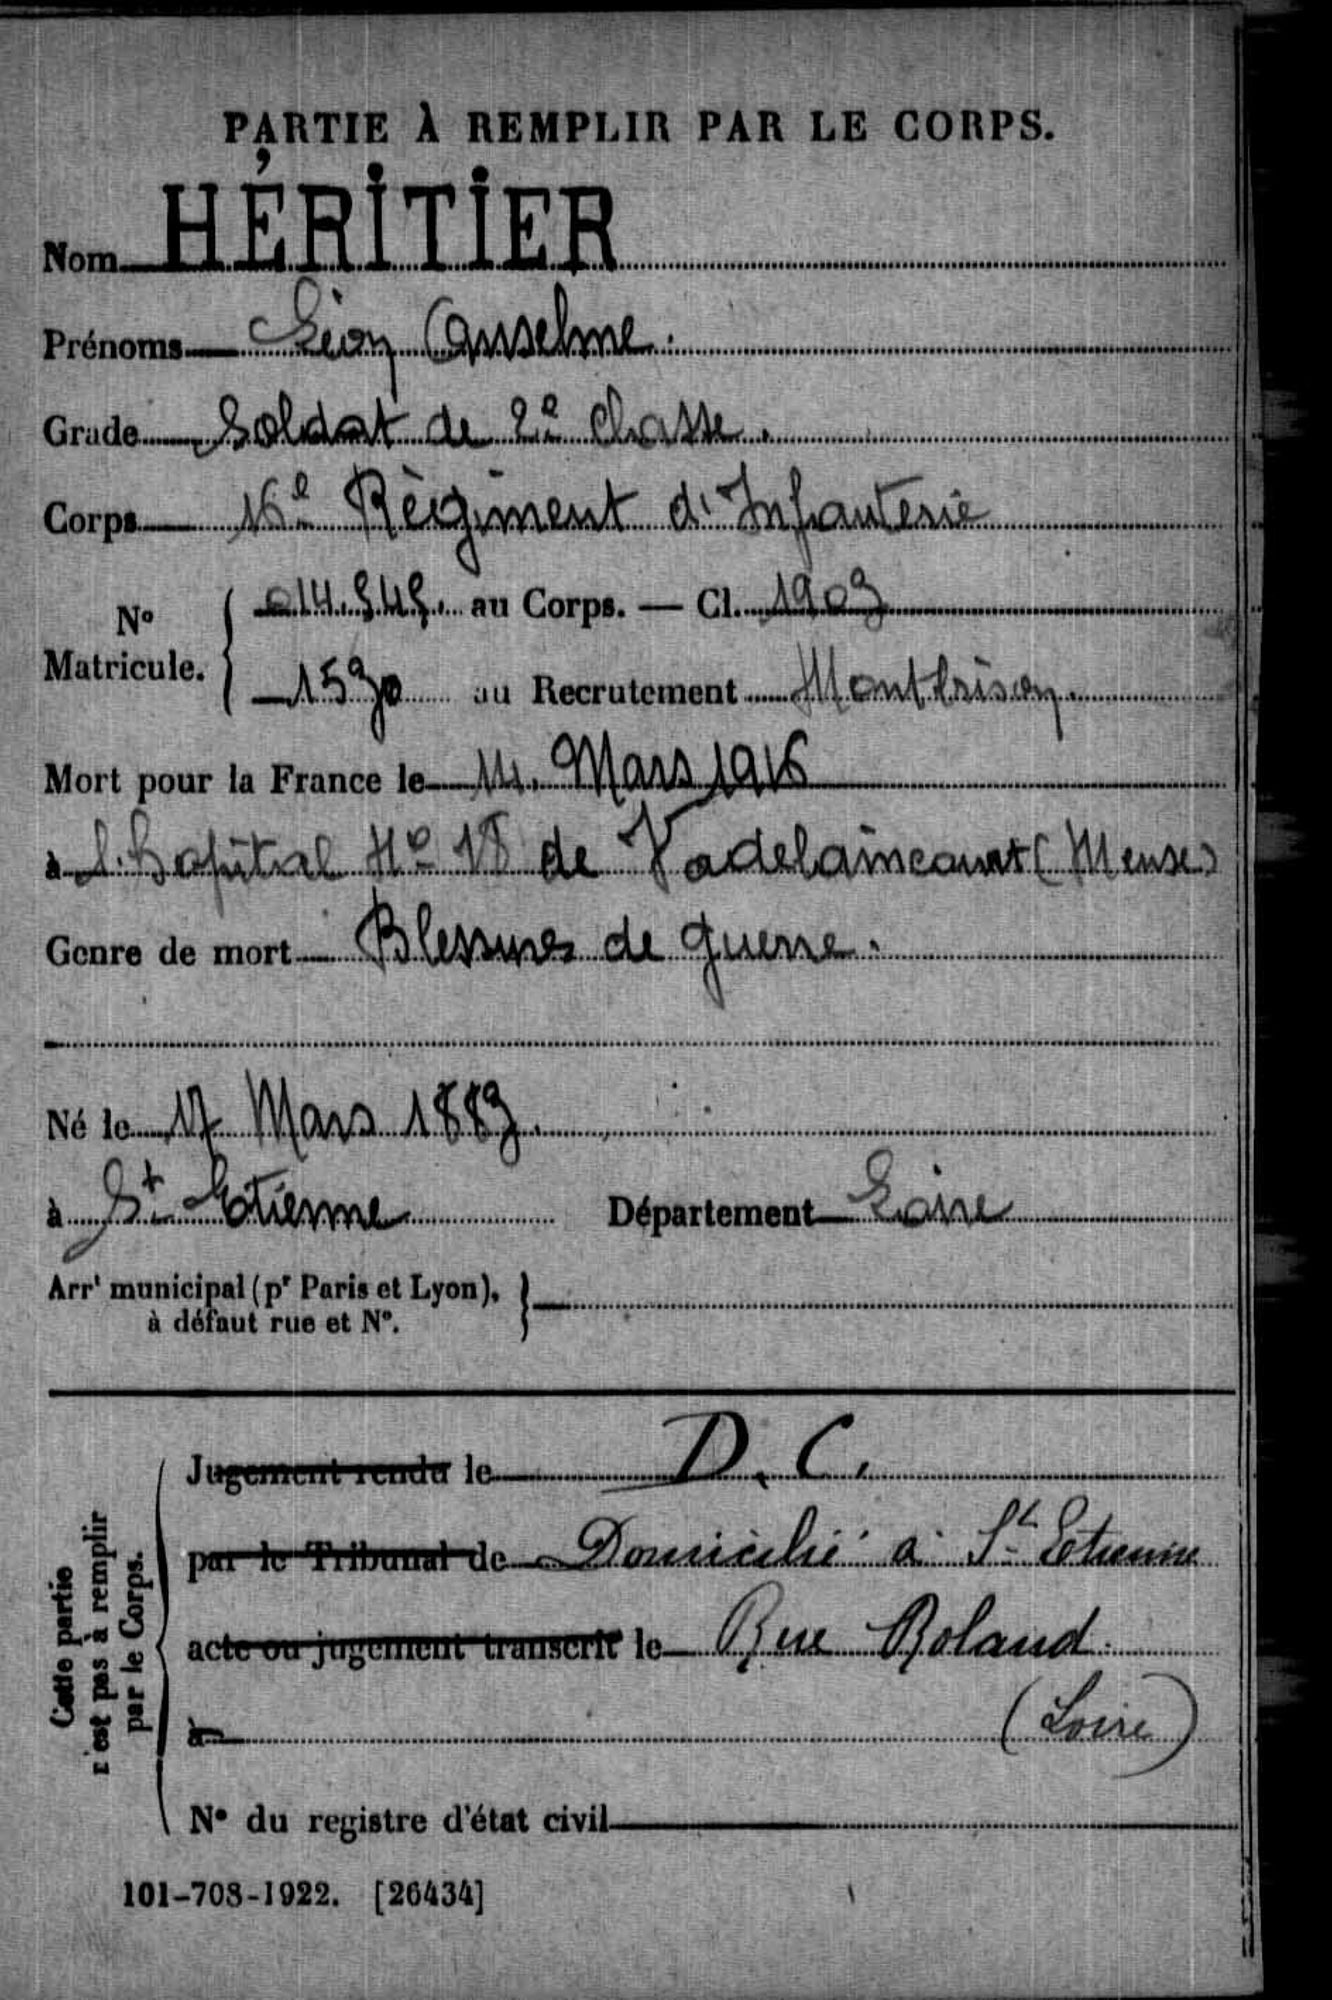 PARTIE À REMPLIR PAR LE CORPS.
Nom HÉRITIER
Prénoms Léon Anselme.
Grade Soldat de 2e Classe.
Corps 16e Régiment d'Infanterie
No Matricule. { 014.545. au Corps. — Cl. 1903
1530 au Recrutement Montbrison.
Mort pour la France le 14. Mars 1916
à l'hôpital No 18 de Vadelaincourt (Meuse)
Genre de mort Blessures de guerre.
Né le 17 Mars 1883.
à St Etienne Département Loire
Arrt municipal (pr Paris et Lyon), à défaut rue et No. }
Cette partie n'est pas à remplir par le Corps.
Jugement rendu le D. C.
par le Tribunal de Domicilié à St Etienne
acte ou jugement transcrit le Rue Roland.
à (Loire)
No du registre d'état civil
101-708-1922. [26434]